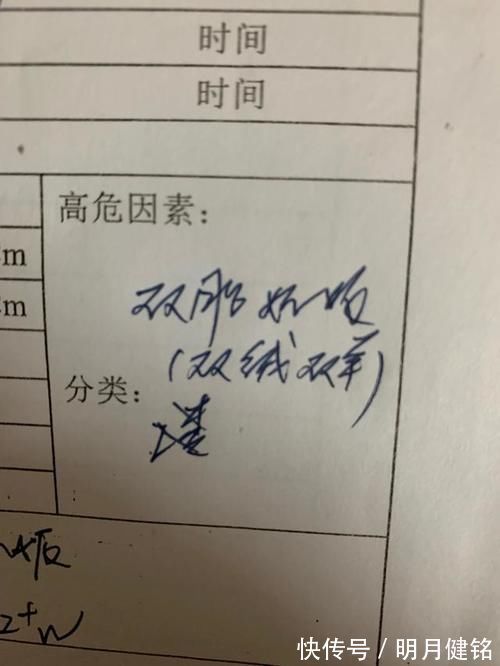 时间
时间
高危因素：
m
m
双胎妊娠
(双绒双羊)
分类：
2⁺W
快传号/明月健铭